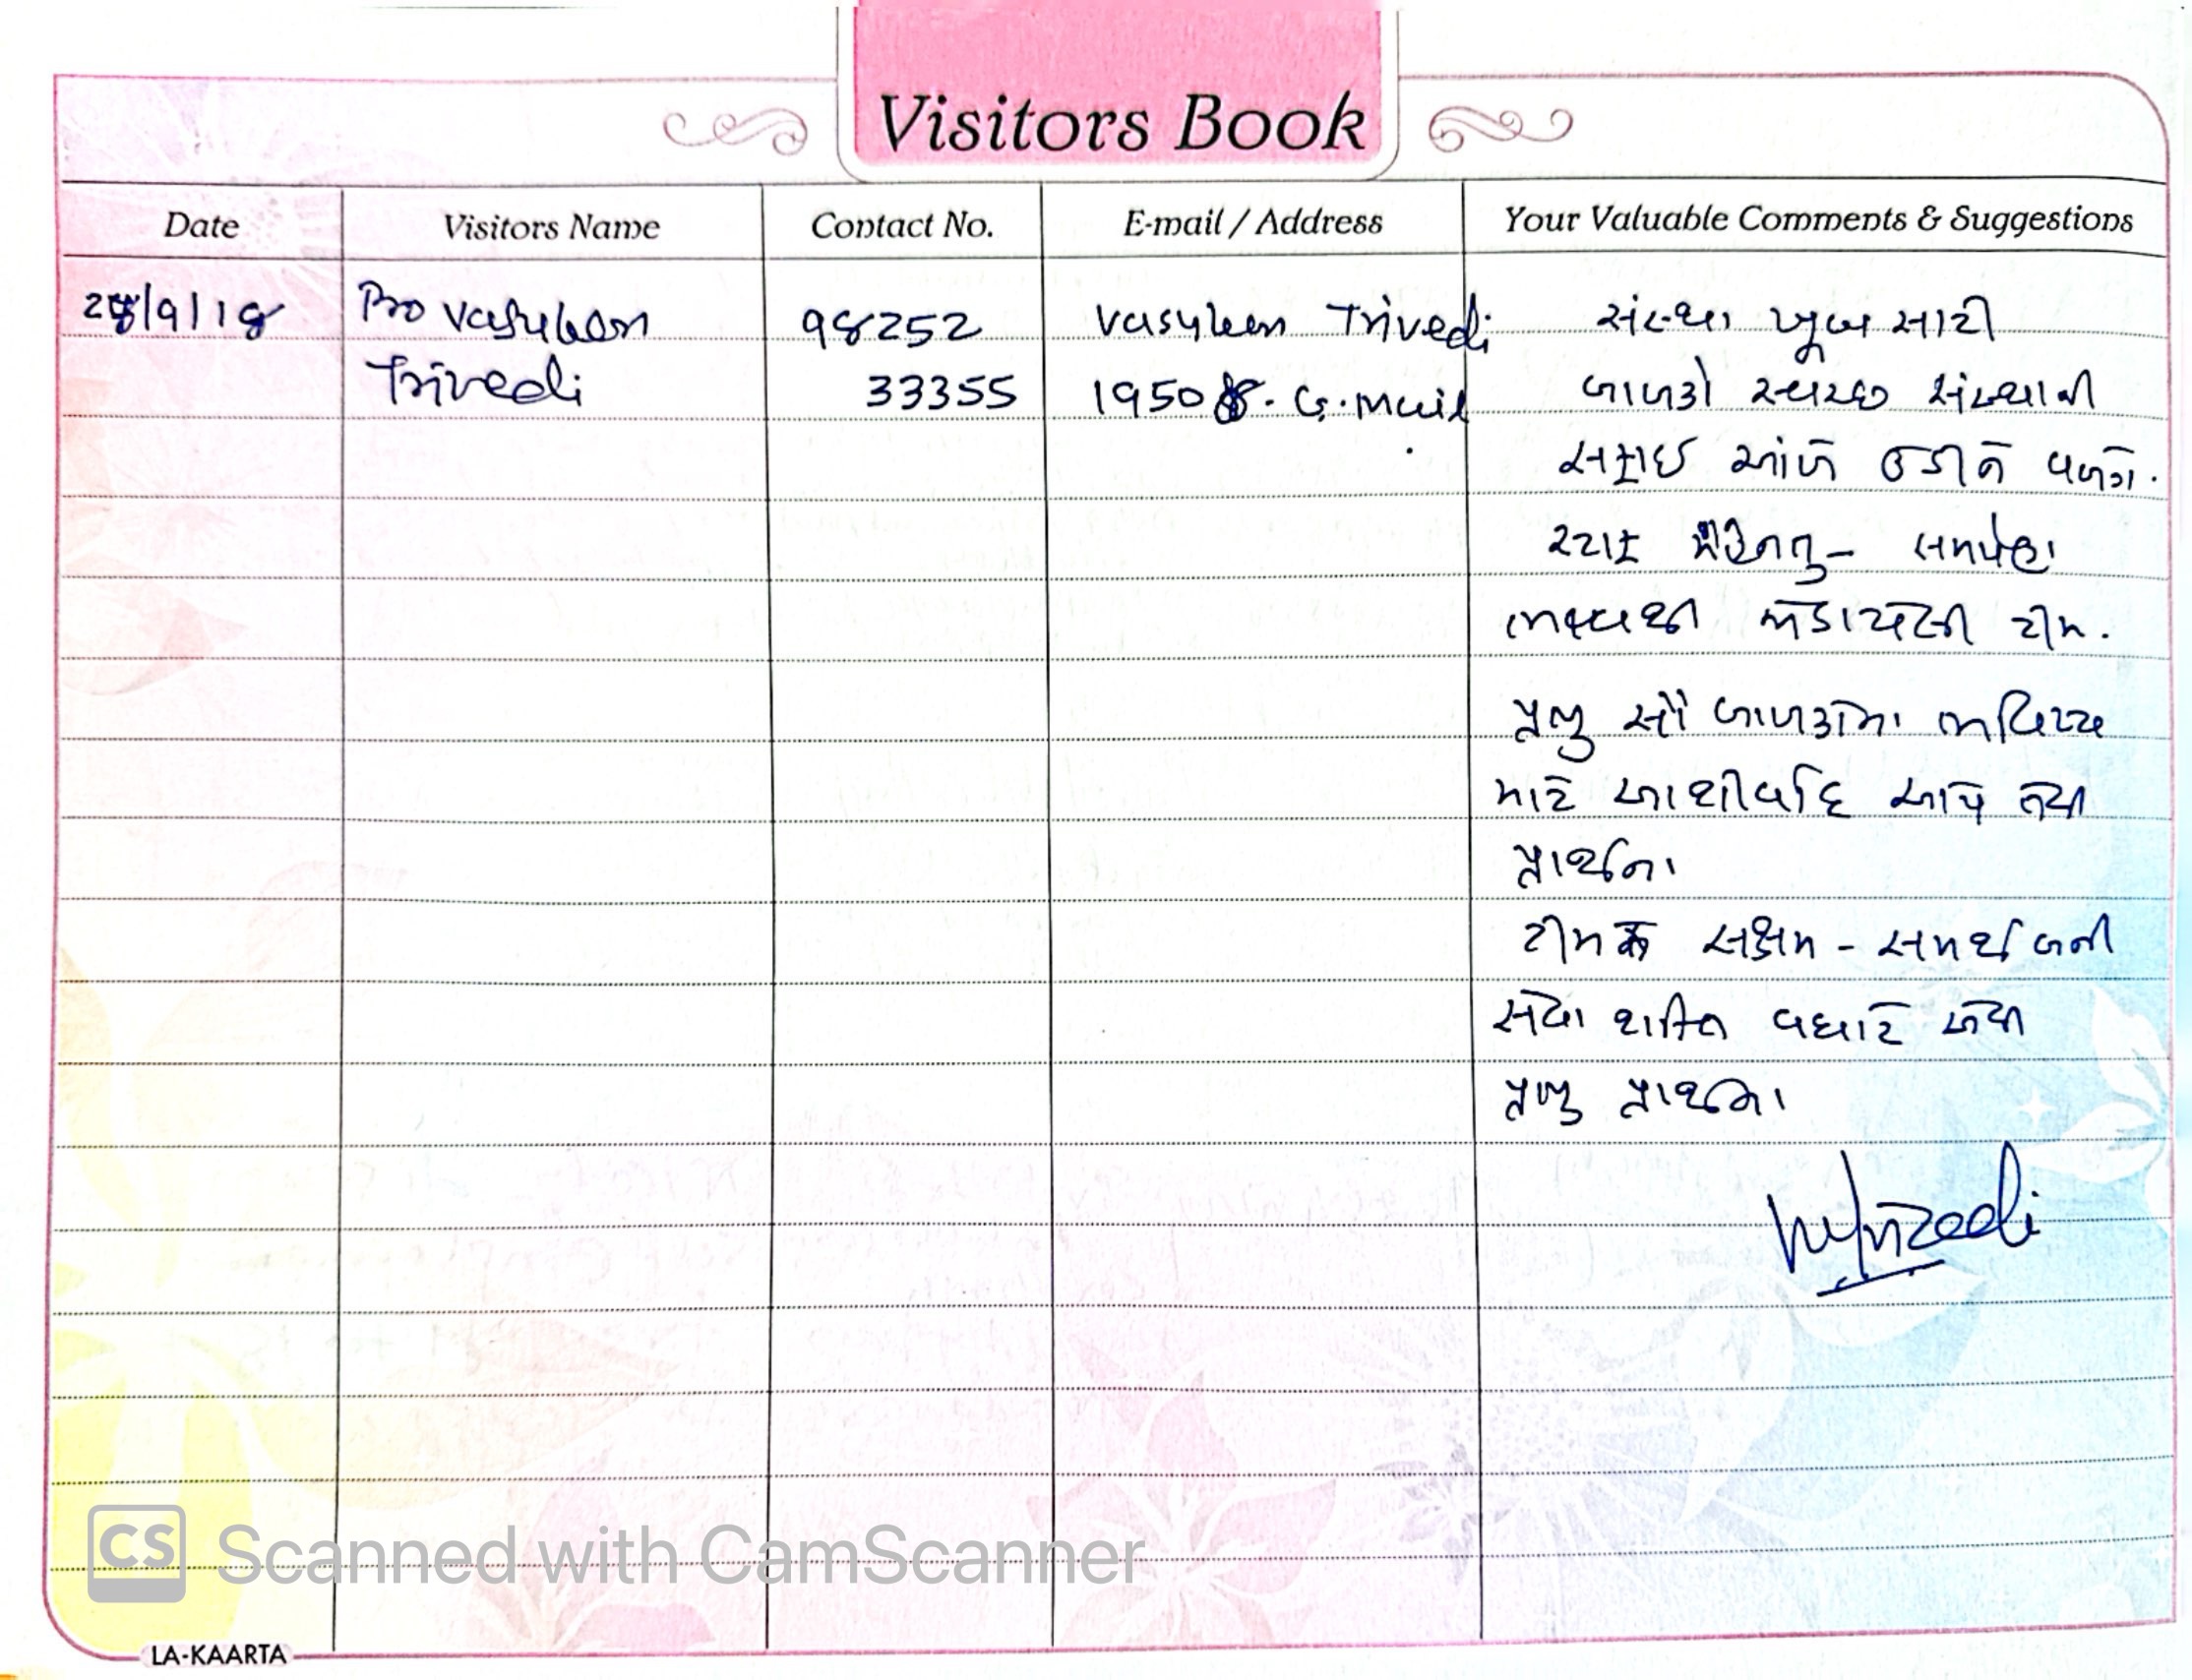 Visitors Book
Date Visitors Name Contact No. E-mail / Address Your Valuable Comments & Suggestions
/9/18 Pro Vasuben 98252 vasuben Trivedi સંસ્થા ખુબ સારી
Trivedi 33355 1950 G.mail બાળકો સ્વચ્છ સંસ્થાની
સફાઈ આંખે ઉડીને વળગે.
સ્ટાફ સમર્પણ
ભાવથી જોડાયેલી ટીમ.
પ્રભુ સૌ બાળકોના ભવિષ્ય
માટે આશીર્વાદ આપે તેવી
પ્રાર્થના
ટીમ સક્ષમ - સમર્થ બની
સેવા શક્તિ વધારે તેવી
પ્રભુ પ્રાર્થના
CS Scanned with CamScanner
LA-KAARTA